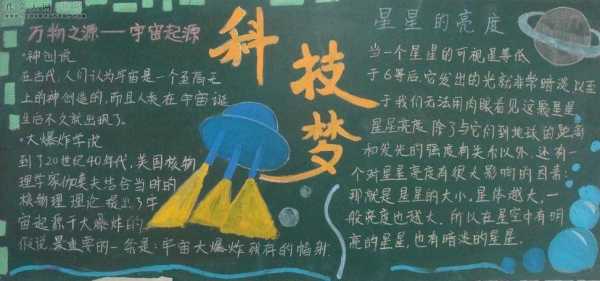 万物之源——宇宙起源
·神创说
在古代,人们认为宇宙是一个至高无
上的神创造的,而且人类在宇宙诞
生后不久就出现了。
·大爆炸学说
到了20世纪40年代,英国核物
理学家伽莫夫结合当时的
核物理理论提出了宇
宙起源于大爆炸的
假说最重要的一条是:宇宙大爆炸残存的辐射
科技梦
星星的亮度
当一个星星的可视星等低
于6等后,它发出的光就非常暗淡以至
于我们无法用肉眼看见这颗星星
星星亮度除了与它们到地球的距离
和发光的强度有关系以外,还有一
个对星星亮度有很大影响的因素:
那就是星星的大小,星体越大,一
般亮度也越大,所以在星空中有明
亮的星星,也有暗淡的星星.